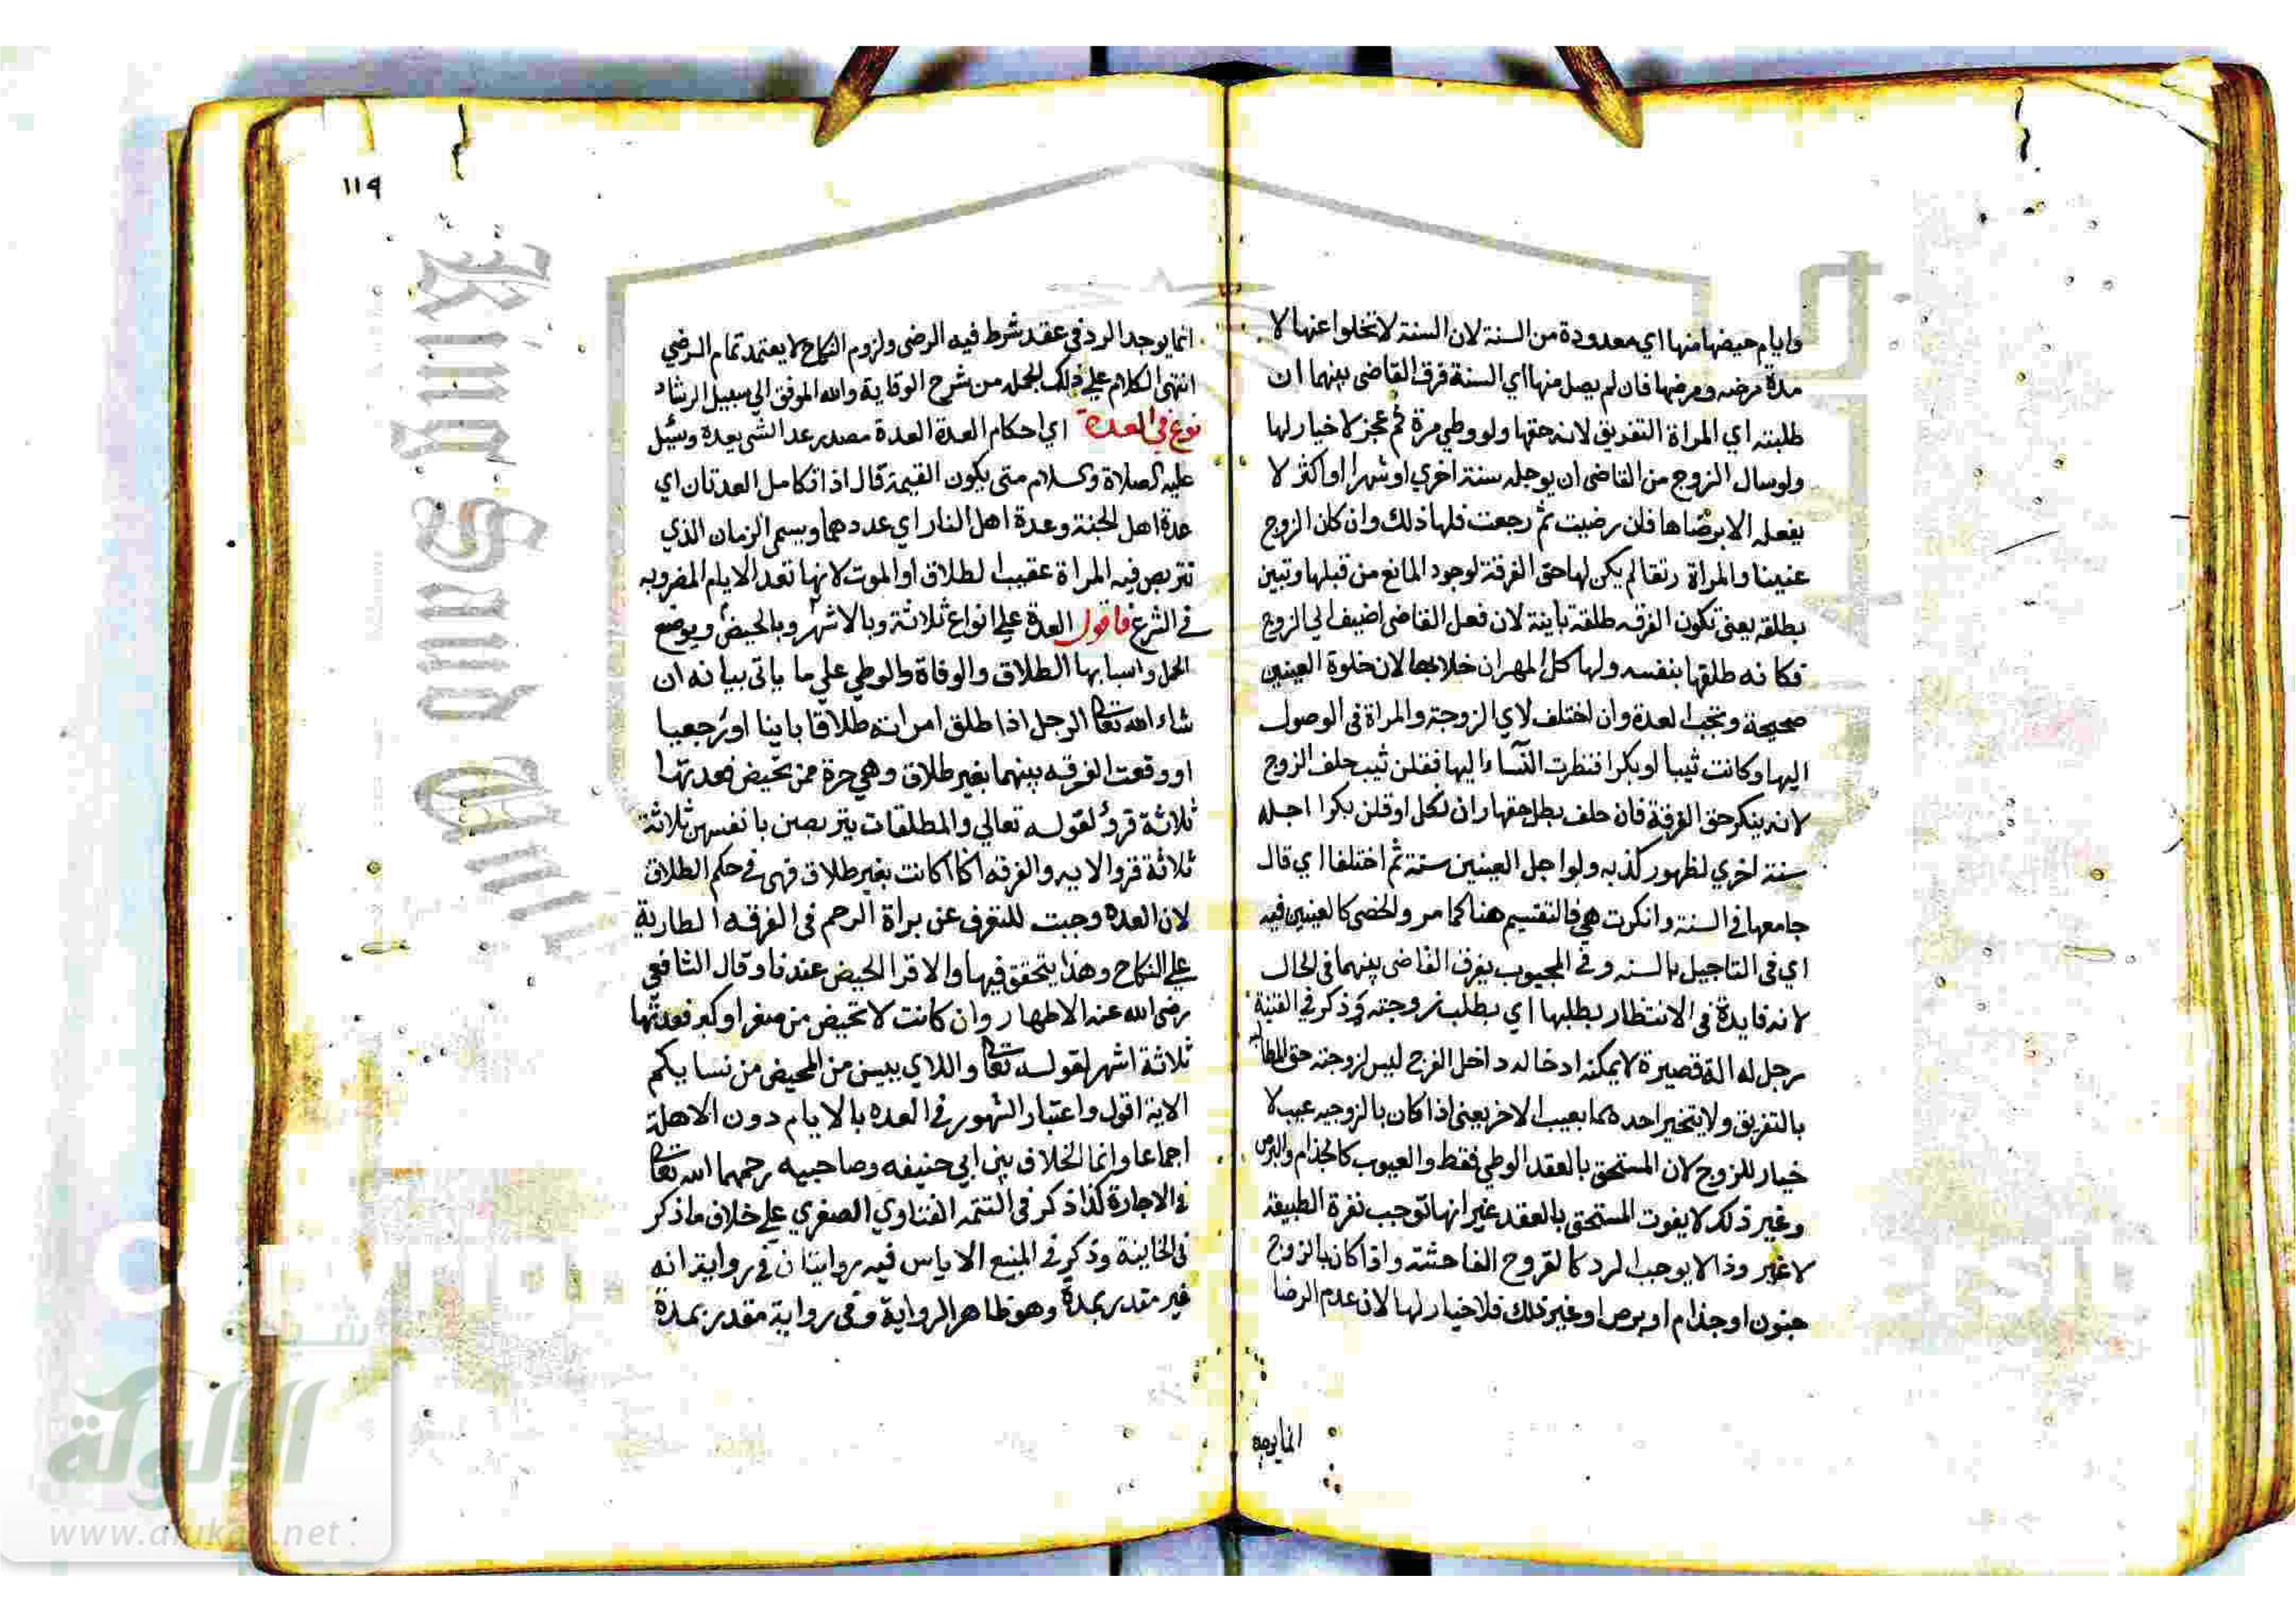 وايام حيضها منها اي معدودة من السنة لان السنة لا تخلوا عنها لا
مدة مرضه ومرضها فان لم يصل منها اي السنة فرق القاضى بينهما ان
طلبته اي المراة التفريق لانه حقها ولو وطي مرة ثم عجز لا خيار لها
ولو سال الزوج من القاضى ان يوجله سنة اخري او شهرا او اكثر لا
يفعله الا برضاها فان رضيت ثم رجعت فلها ذلك وان كان الزوج
عنينا والمراة رتقا لم يكن لها حق الفرقة لوجود المانع من قبلها وتبين
بطلقة يعنى تكون الفرقه طلقة باينة لان فعل القاضى اضيف الي الزوج
فكانه طلقها بنفسه ولها كل المهر ان خلا بها لان خلوة العينين
صحيحة وتجب العدة وان اختلف لاي الزوجة والمراة فى الوصول
اليها وكانت ثيبا او بكرا فنظرت النسآء اليها فقلن ثيب حلف الزوج
لانه ينكر حق الفرقة فان حلف بطل حقها وان نكل او قلن بكرا اجله
سنة اخري لظهور كذبه ولو اجل العينين سنة ثم اختلفا اي قال
جامعها في السنة وانكرت هي فالتقسيم هنا كما مر والخصى كالعينين فيه
اي فى التاجيل بالسنه وفى المجبوب يفرق القاضى بينهما فى الحال
لانه فايدة فى الانتظار بطلبها اي بطلب زوجته وذكر في القنية
رجل له الة قصيرة لا يمكنه ادخاله داخل الفرج ليس لزوجته حق المطالبه
بالتفريق ولا يتخير احدهما بعيب الاخر يعنى اذا كان بالزوجيه عيب لا
خيار للزوج لان المستحق بالعقد الوطي فقط والعيوب كالجذام والبرص
وغير ذلك لا يفوت المستحق بالعقد غير انها توجب نفرة الطبيعة
لا غير وذا لا يوجب الرد كالقروح الفاحشة واذا كان بالزوج
جنون او جذام او برص او غير ذلك فلا خيار لها لان عدم الرضا
انما يوجد
١١٩
انما يوجد الرد فى عقد شرط فيه الرضى ولزوم النكاح لا يعتمد تمام الرضي
انتهى الكلام علي ذلك بجمله من شرح الوقاية والله الموفق الي سبيل الرشاد
نوع في العدة اي احكام العدة العدة مصدر عد الشي يعده وسئيل
عليه الصلاة والسلام متى يكون القيمة قال اذا تكامل العدتان اي
عدة اهل الجنة وعدة اهل النار اي عددهما ويسمى الزمان الذي
تتربص فيه المراة عقيب الطلاق او الموت لانها تعد الايام المضروبه
في الشرع فاقول العدة علي انواع ثلاثة وبالاشهر وبالحيض وبوضع
الحمل واسبابها الطلاق والوفاة والوطي علي ما ياتى بيانه ان
شاء الله تعالى الرجل اذا طلق امراته طلاقا باينا او رجعيا
او وقعت الفرقه بينهما بغير طلاق وهي حرة ممن تحيض فعدتها
ثلاثة قروٌ لقوله تعالي والمطلقات يتربصن بانفسهن ثلاثة
ثلاثة قروا الايه والفرقه اذا كانت بغير طلاق فهى في حكم الطلاق
لان العده وجبت للتعرف عن براة الرحم فى الفرقه الطارية
علي النكاح وهذا يتحقق فيها والاقرا الحيض عندنا وقال الشافعي
رضى الله عنه الاطهار وان كانت لا تحيض من صغر او كبر فعدتها
ثلاثة اشهر لقوله تعالى واللاي ييسن من المحيض من نسايكم
الاية اقول واعتبار الشهور في العده بالايام دون الاهلة
اجماعا وانما الخلاف بين ابي حنيفه وصاحبيه رحمهما الله تعالى
في الاجارة كذا ذكر فى التتمه الفتاوي الصغري علي خلاف ما ذكر
فى الخانية وذكر في المنبع الاياس فيه روايتان في رواية انه
غير مقدر بمدة وهو ظاهر الرواية وفى رواية مقدر بمدة
King Saud Univ
شبكة
الألوكة
www.alukah.net